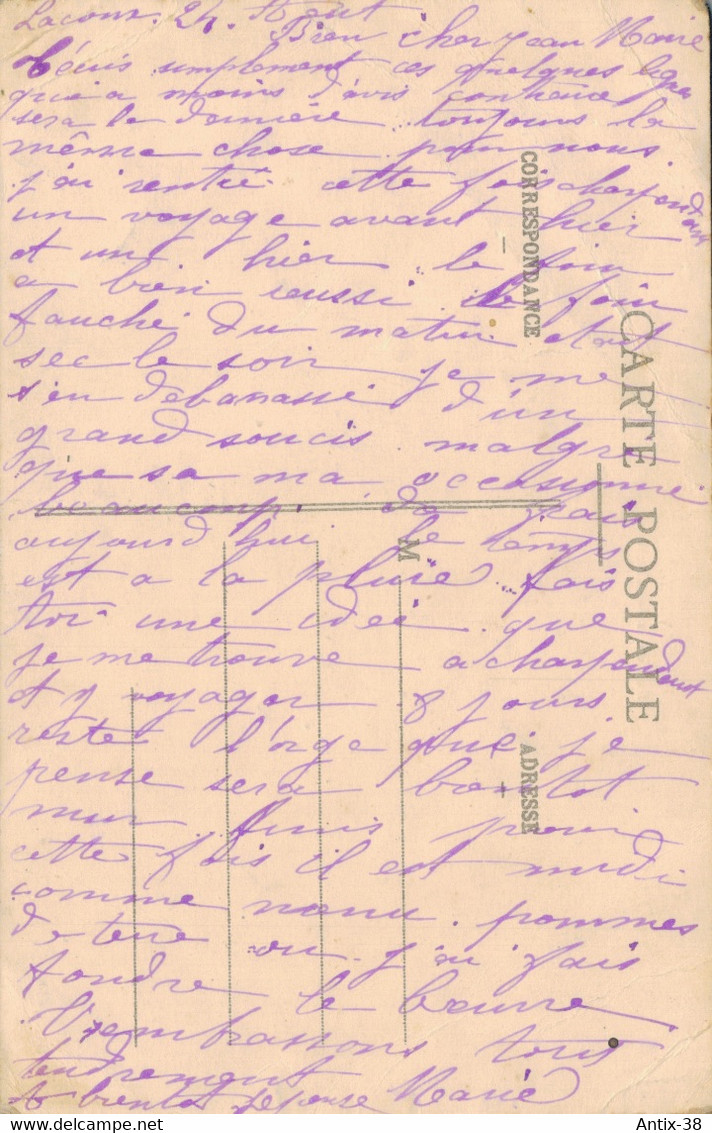 Lacour 24 Aout
Bien cher Jean Marie
t'écris simplement ces quelques lignes
que a moins d'avis contraire
sera la derniere toujours la
même chose pour nous.
j'ai rentré cette fois
un voyage avant hier
et un hier le foin
a bien reussi le foin
fauché du matin etait
sec le soir je me
s'en debarassé d'un
grand soucis malgre
que sa ma occasionné
beaucoup de frais
aujourd'hui le temps
est a la pluie fais
toi une idee que
je me trouve a
et y voyager 8 jours
reste l'orge que je
pense sera bientot
mur finis pour
cette fois il est midi
comme menu pommes
de terre ou j'ai fais
fondre le beurre
t'embrassons tous
tendrement
a bientot je pense Marie
CARTE POSTALE
CORRESPONDANCE
ADRESSE
M
Antix-38